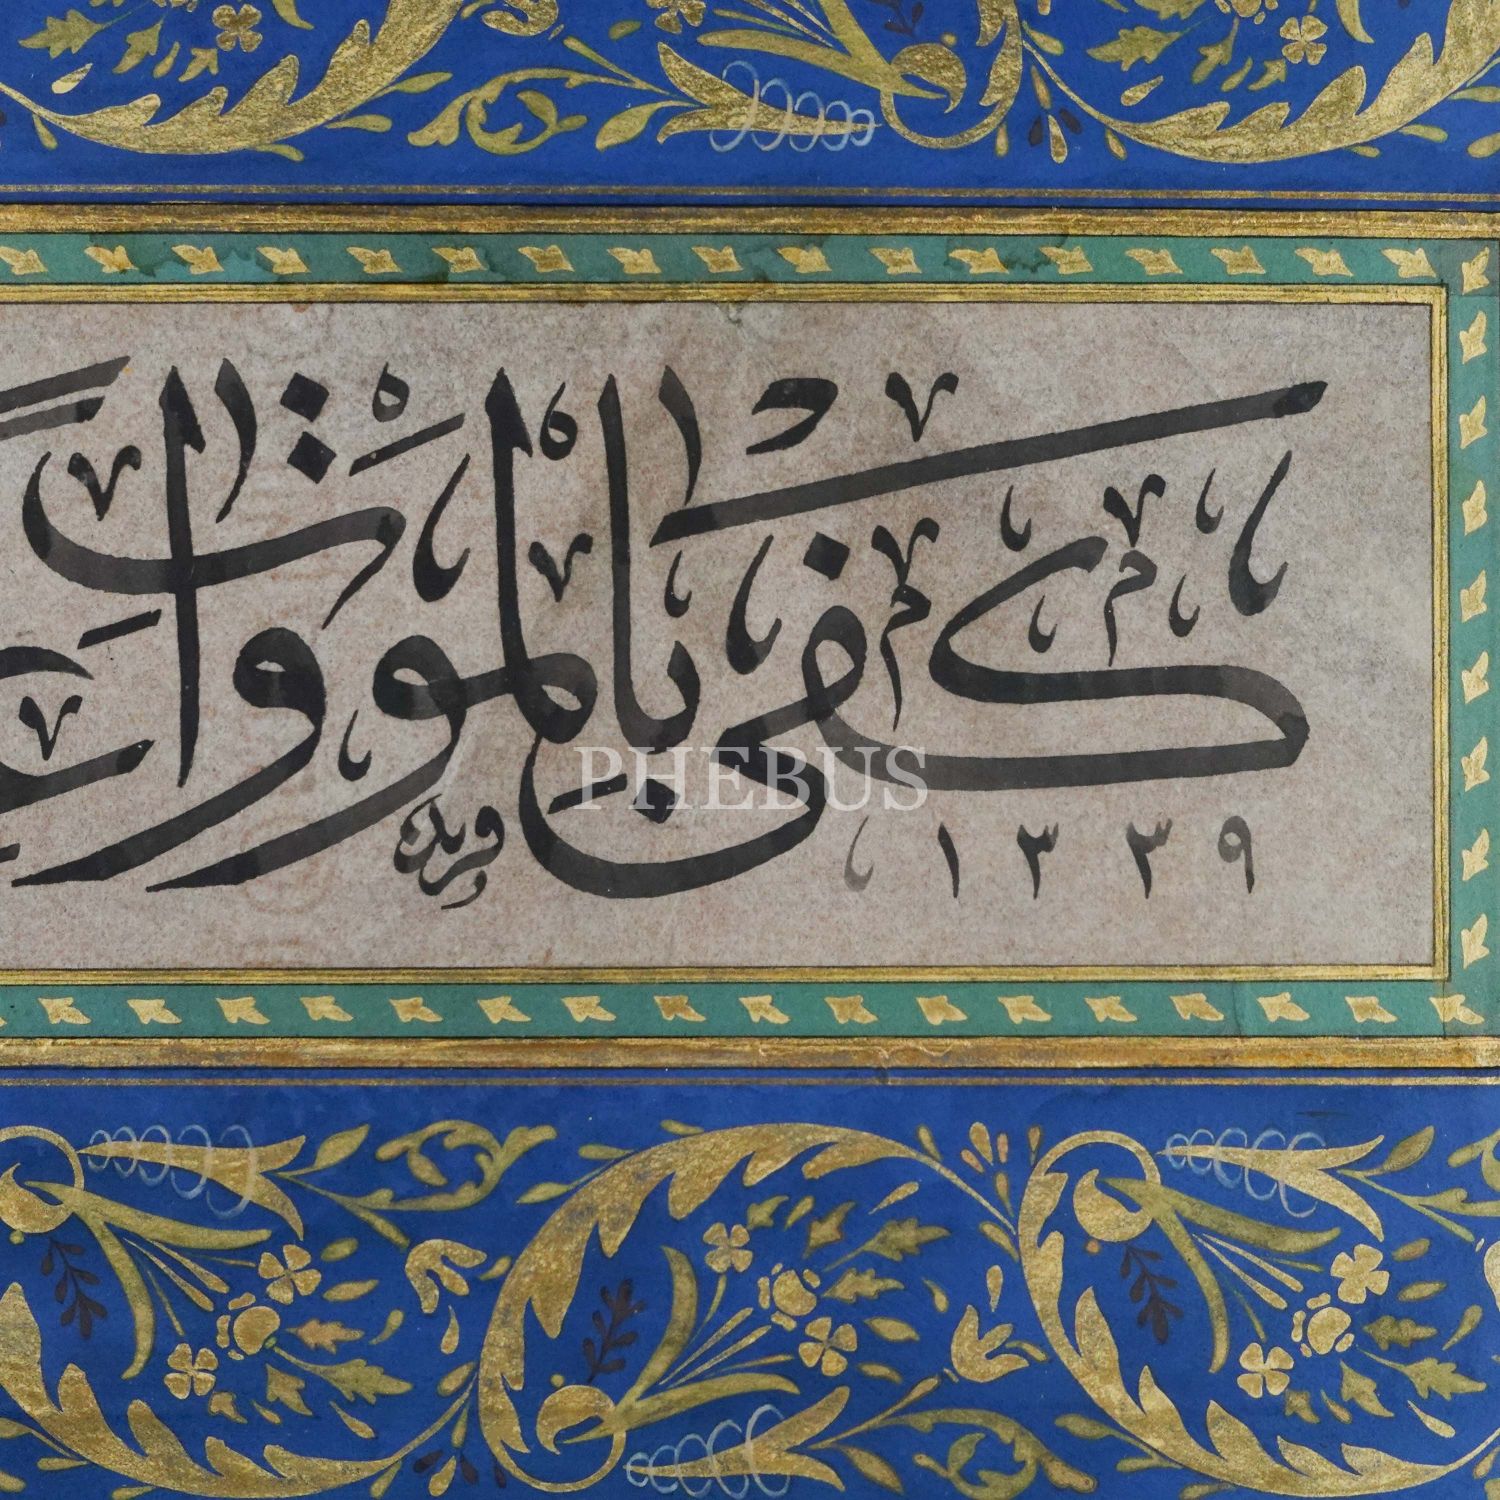 كَفٰى بِالْمَوْتِ وَا
فريد
١٣٣٩
PHEBUS